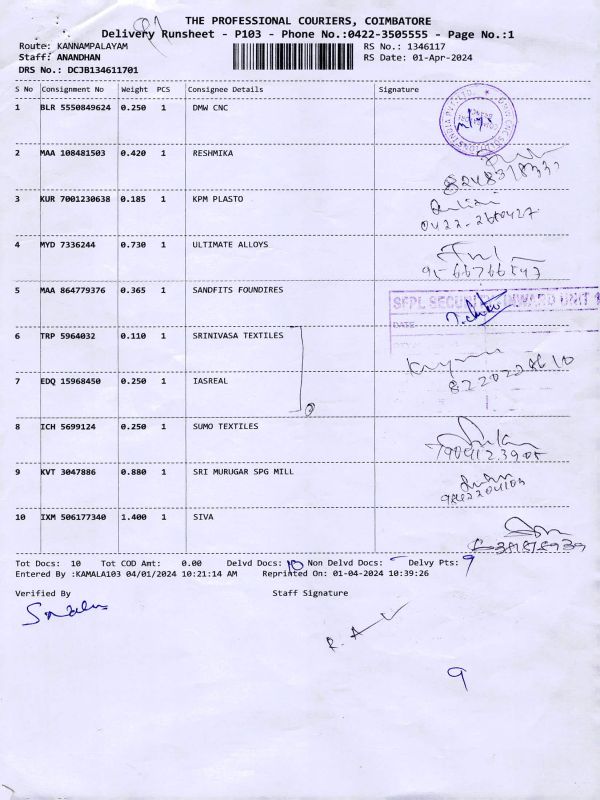 THE PROFESSIONAL COURIERS, COIMBATORE
Delivery Runsheet - P103 - Phone No.:0422-3505555 - Page No.:1
Route: KANNAMPALAYAM RS No.: 1346117
Staff: ANANDHAN RS Date: 01-Apr-2024
DRS No.: DCJB134611701
S No Consignment No Weight PCS Consignee Details Signature
1 BLR 5550849624 0.250 1 DMW CNC
2 MAA 108481503 0.420 1 RESHMIKA
3 KUR 7001230638 0.185 1 KPM PLASTO
4 MYD 7336244 0.730 1 ULTIMATE ALLOYS
5 MAA 864779376 0.365 1 SANDFITS FOUNDIRES
6 TRP 5964032 0.110 1 SRINIVASA TEXTILES
7 EDQ 15968450 0.250 1 IASREAL
8 ICH 5699124 0.250 1 SUMO TEXTILES
9 KVT 3047886 0.880 1 SRI MURUGAR SPG MILL
10 IXM 506177340 1.400 1 SIVA
Tot Docs: 10 Tot COD Amt: 0.00 Delvd Docs: 10 Non Delvd Docs: - Delvy Pts: 9
Entered By :KAMALA103 04/01/2024 10:21:14 AM Reprinted On: 01-04-2024 10:39:26
Verified By Staff Signature
9